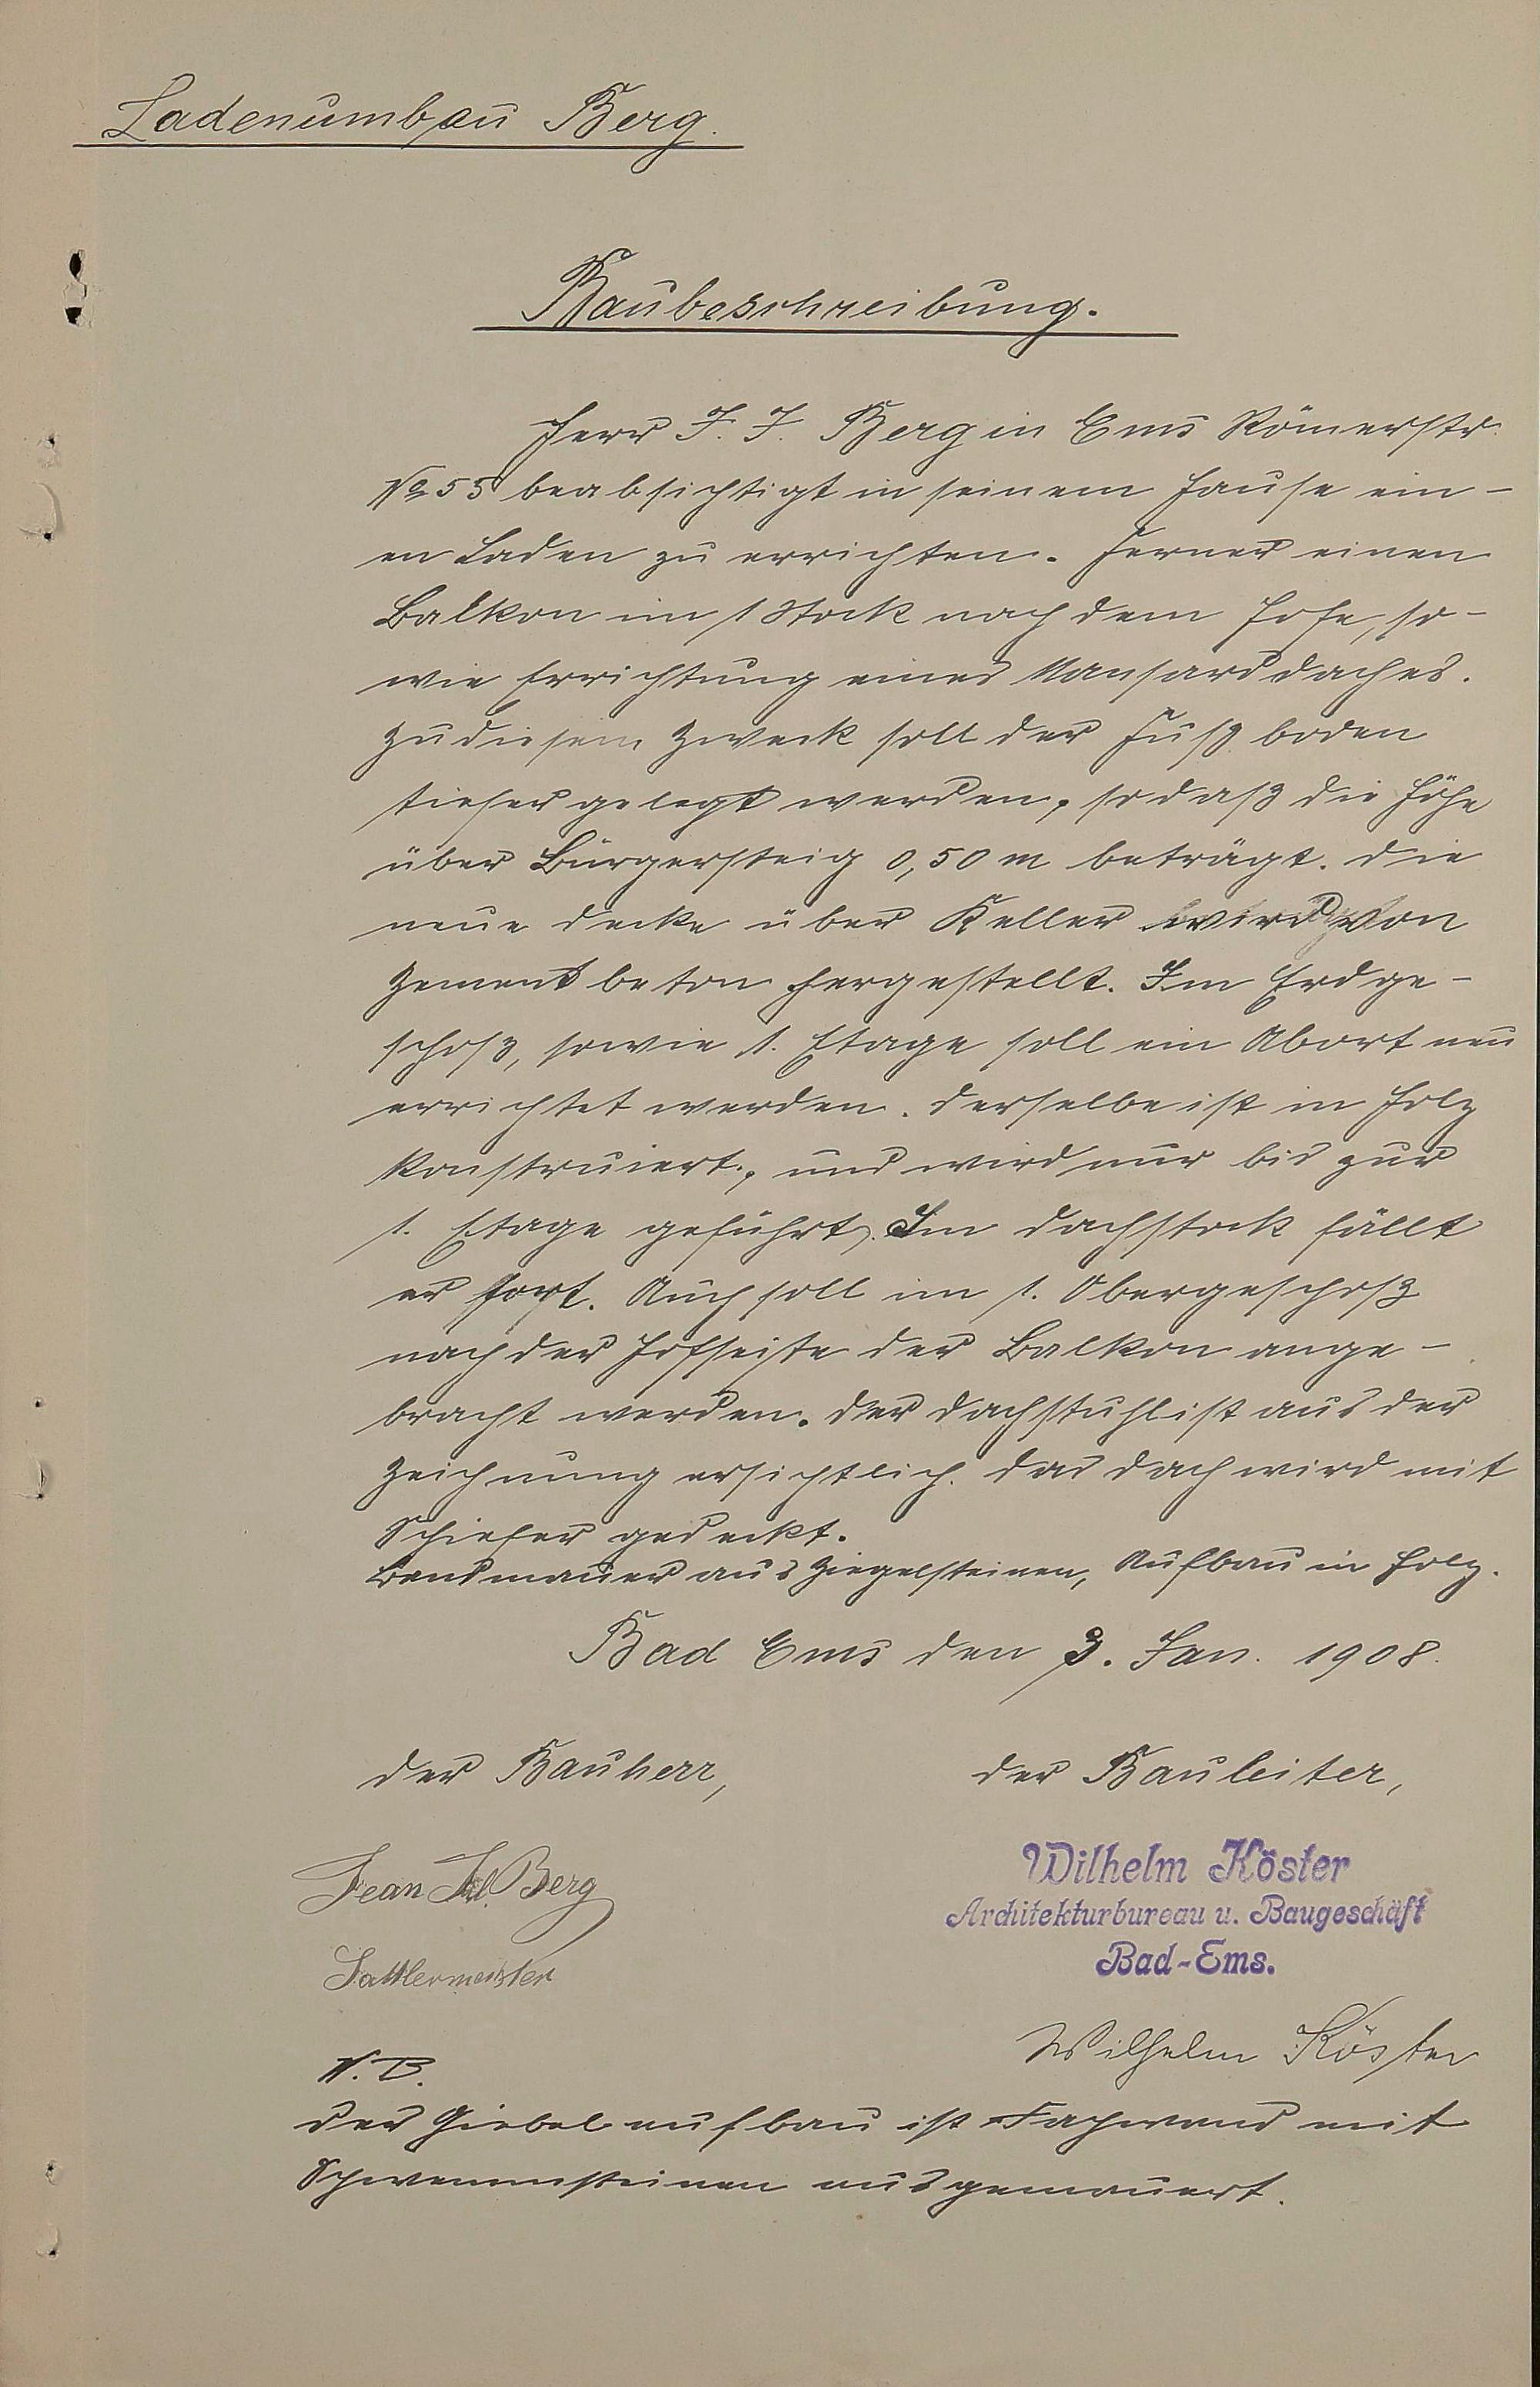 Ladenumbau Berg.
Baubeschreibung.
Herr J. J. Berg in Ems Römerstr.
№ 55 beabsichtigt in seinem Hause ein-
en Laden zu errichten. Ferner einen
Balkon im 1 Stock nach dem Hofe, so-
wie Errichtung eines Mansarddaches.
Zu diesem Zweck soll der Fußboden
tiefer gelegt werden, sodaß die Höhe
über Bürgersteig 0,50 m beträgt. Die
neue Decke über Keller wird von
Zementbeton hergestellt. Im Erdge-
schoß, sowie 1. Etage soll ein Abort neu
errichtet werden. Derselbe ist in Holz
konstruiert, und wird nur bis zur
1. Etage geführt. Im Dachstock fällt
er fort. Auch soll im 1. Obergeschoß
nach der Hofseite der Balkon ange-
bracht werden. Der Dachstuhl ist aus der
Zeichnung ersichtlich. Das Dach wird mit
Schiefer gedeckt.
Brandmauer aus Ziegelsteinen, Aufbau in Holz.
Bad Ems den 3. Jan. 1908.
Der Bauherr,
Der Bauleiter,
Jean Berg
Sattlermeister
Wilhelm Köster
Architekturbureau u. Baugeschäft
Bad-Ems.
Wilhelm Köster
N. B.
Der Giebelaufbau ist Fachwand mit
Schwemmsteinen ausgemauert.